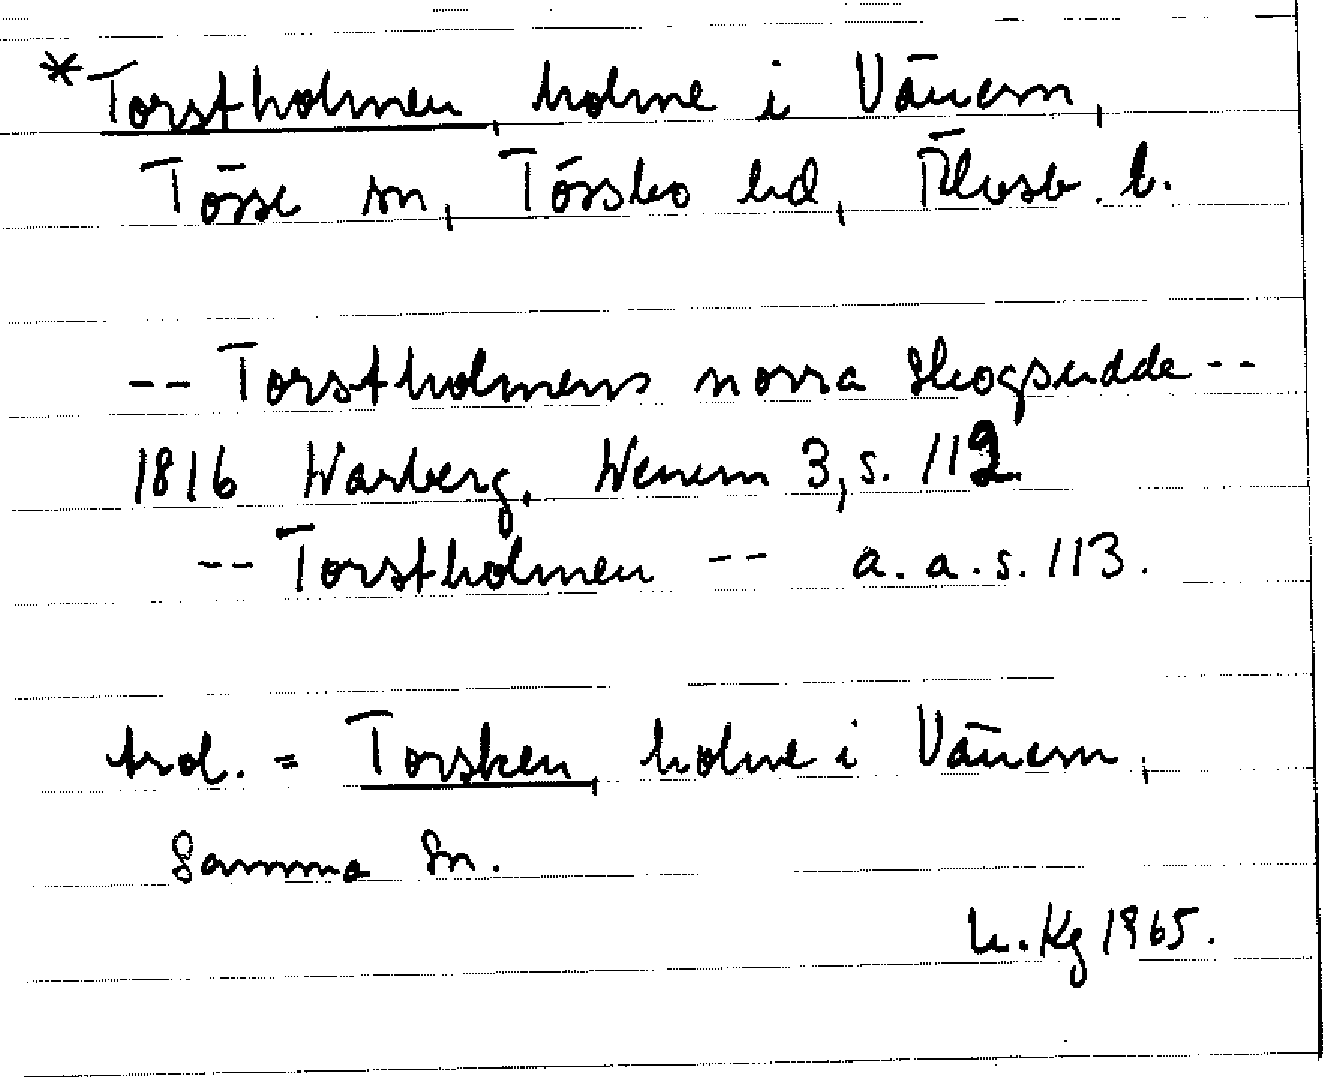 *Torstholmen, holme i Vänern,
Tösse sn, Tössbo hd, Älvsb. l.
-- Torstholmens norra Skogsudde --
1816 Warberg, Wenern 3, s. 112.
-- Torstholmen -- a. a. s. 113.
trol. = Torsken, holme i Vänern,
Samma sn.
Kg 1965.